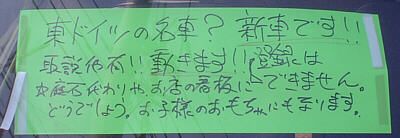 東ドイツの名車? 新車です!!
取説他有!!動きます!!登録には
できません。
文鎮代わりや、お店の看板に
どうでしょう。お子様のおもちゃにもなります。